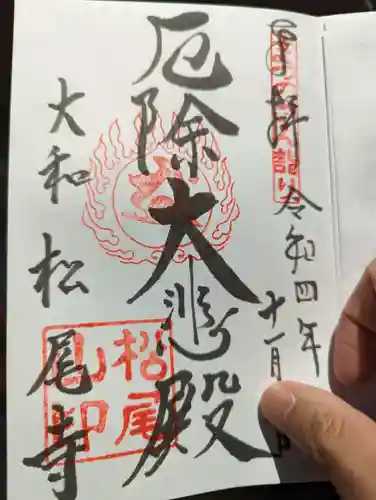 奉拝 令和四年十一月 日
厄除大悲殿
大和 松尾寺
松尾山印